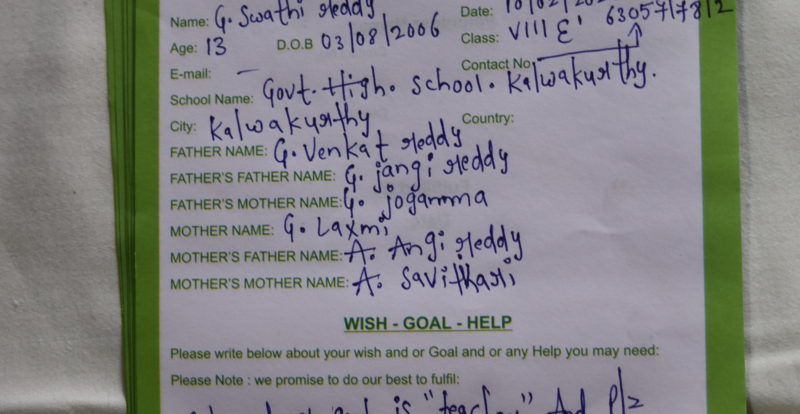 Name: G. Swathi reddy Date:
Age: 13 D.O.B 03/08/2006 Class: VIII E' 6305717812
E-mail: – Contact No
School Name: Govt. High. School. Kalwakurthy.
City: Kalwakurthy Country:
FATHER NAME: G. Venkat reddy
FATHER'S FATHER NAME: G. jangi reddy
FATHER'S MOTHER NAME: G. jogamma
MOTHER NAME: G. Laxmi
MOTHER'S FATHER NAME: A. Angi reddy
MOTHER'S MOTHER NAME: A. Savithari
WISH - GOAL - HELP
Please write below about your wish and or Goal and or any Help you may need:
Please Note : we promise to do our best to fulfil:
is "teacher" And Plz